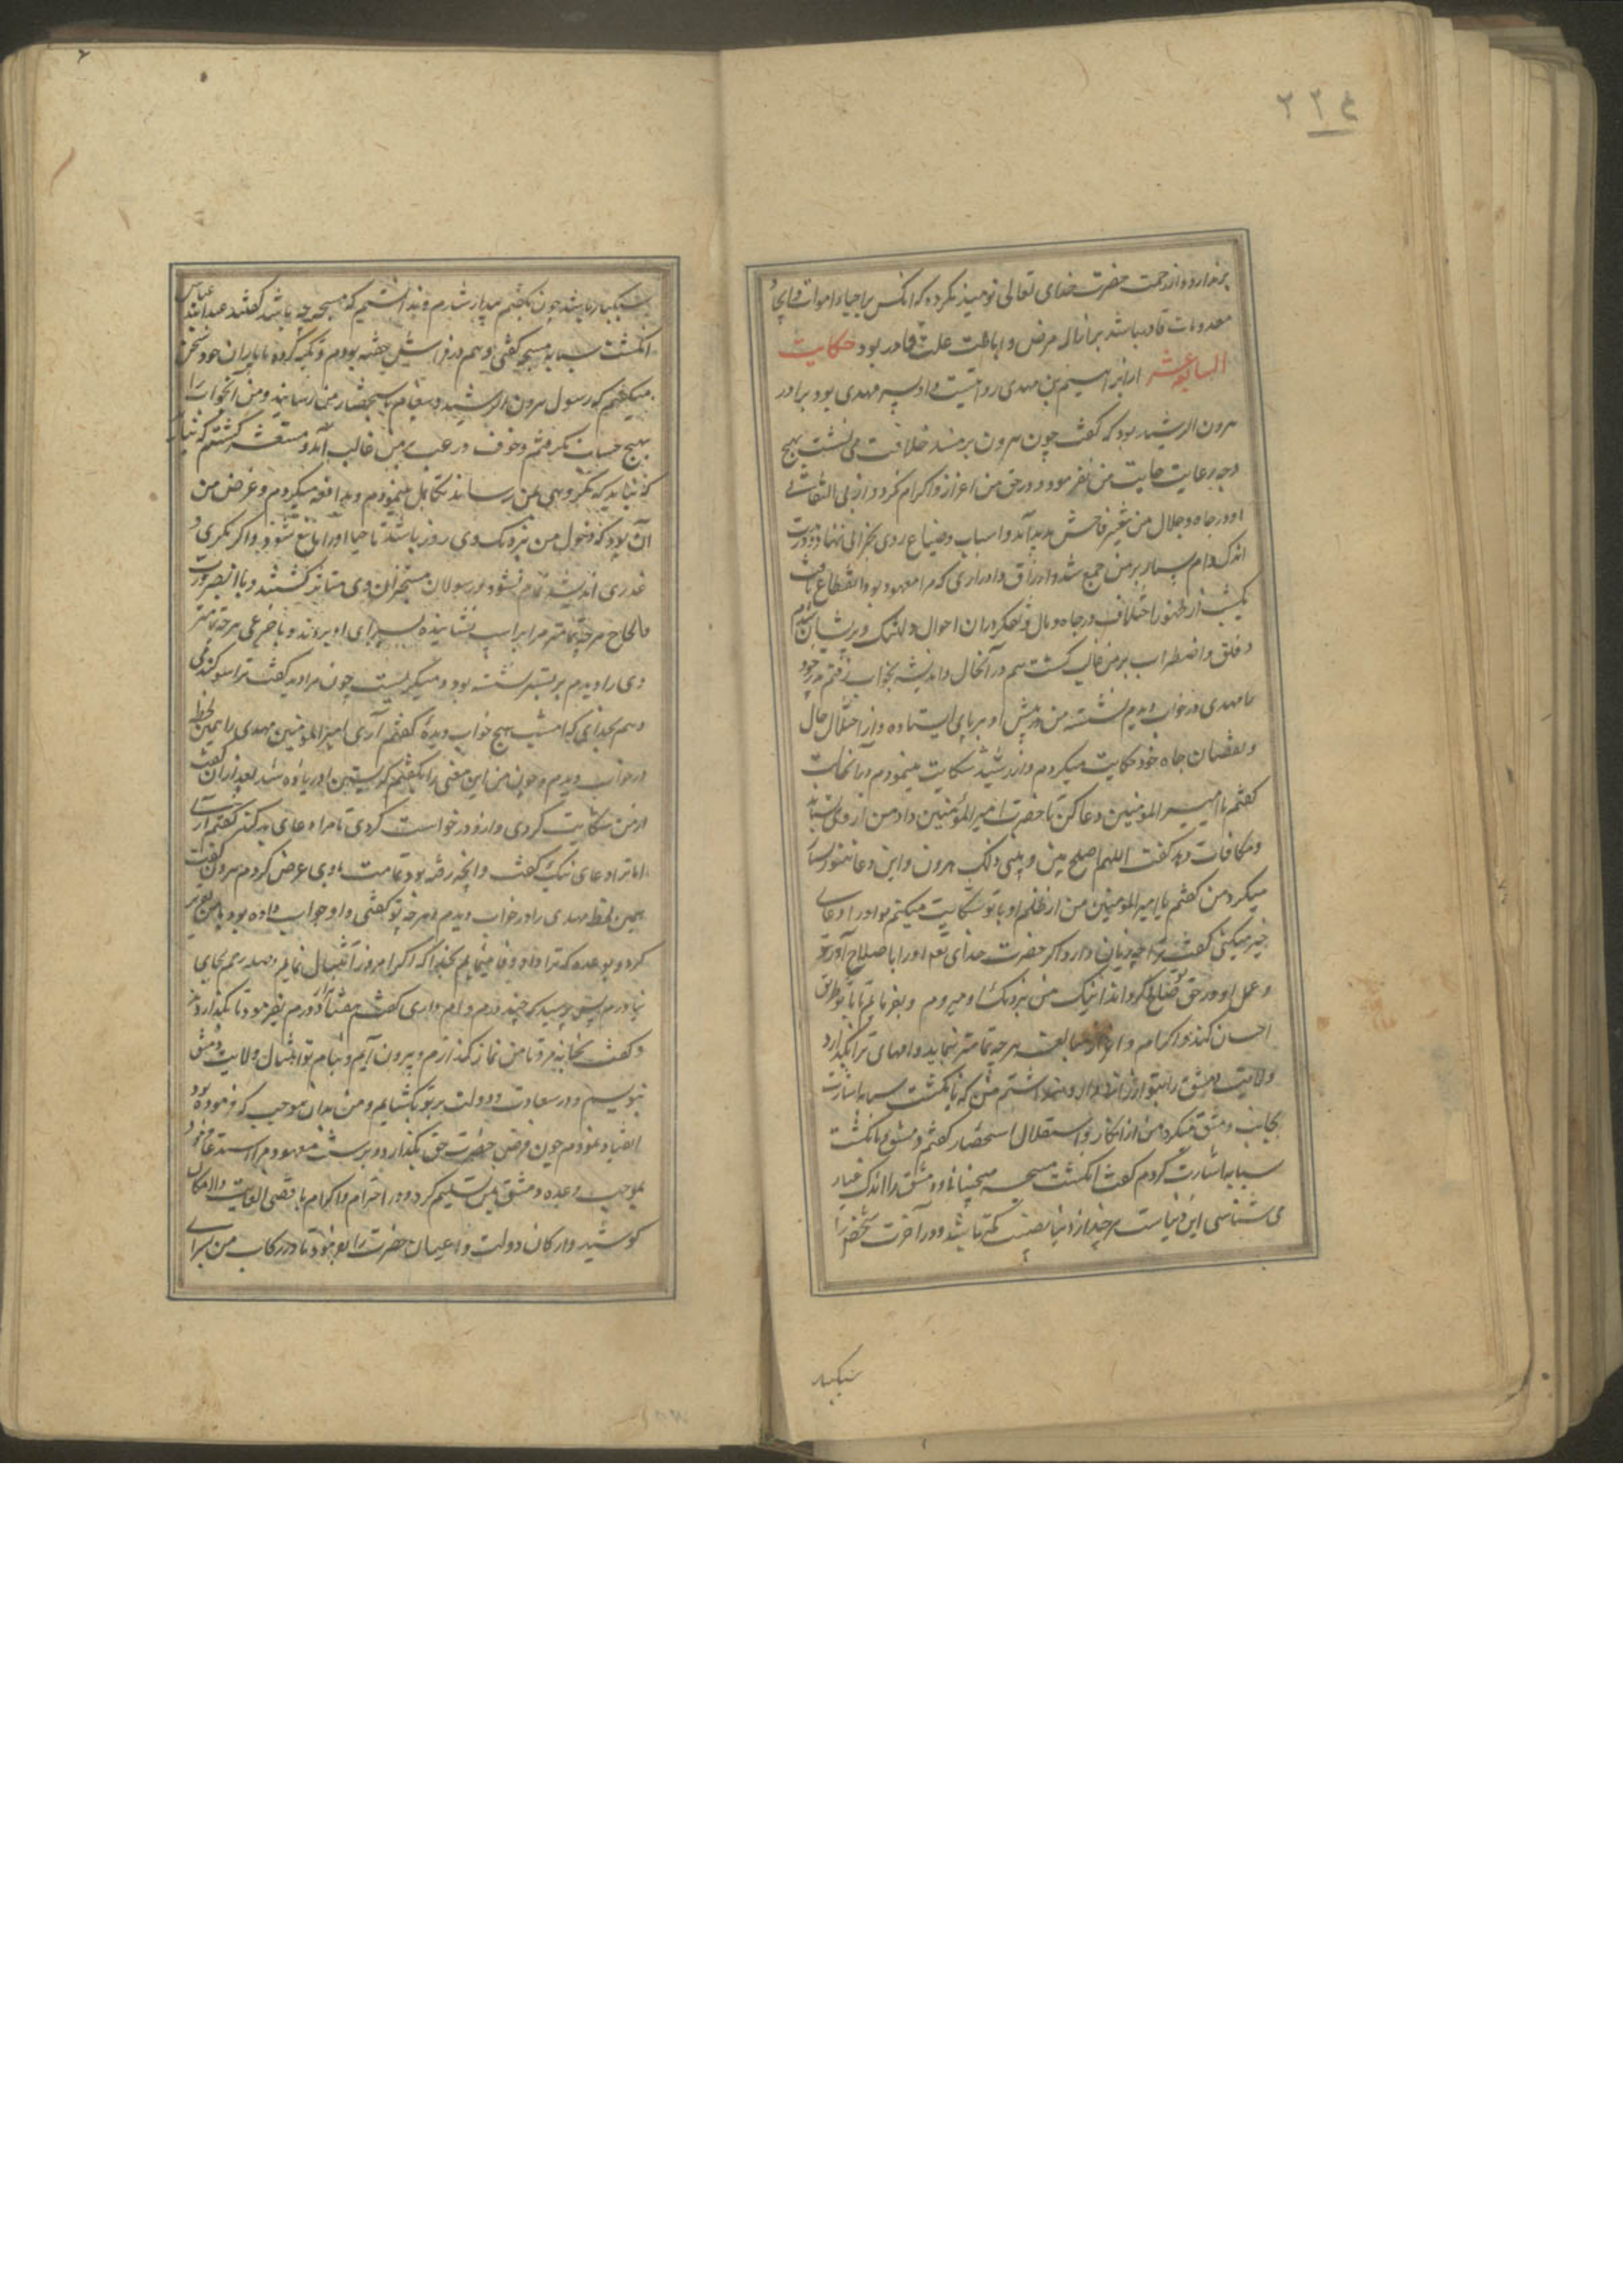 ۲۲۴
برندارد و از رحمت حضرت خدای تعالی نومید نگردد که انکس بر احیاء اموات و ایجاد
معدومات قادر باشد بر ازاله مرض و اماطت علت قادر بود حکایت
السابع عشر از ابراهیم بن مهدی روایتست و او پسر مهدی بود برادر
هرون الرشید بود که گفت چون هرون بر مسند خلافت می نشست هیچ
وجه رعایت جانب من نفرمود و در حق من اعزاز و اکرام نکرد و از بی التفاتی
او در جاه و جلال من تغییر فاحش پدید آمد و اسباب و ضیاع روی بخرابی نهاد و در مدت
اندک وام بسیار بر من جمع شد و ارزاق و ادراری که مرا معهود بود انقطاع یافت
یکشب از ظهور اختلاف در جاه و مال و تفکر در ان احوال دلتنک و پریشان شدم
و قلق و اضطراب بر من غالب کشت هم در آنحال و اندیشه بخواب رفتم پدر خود
را مهدی در خواب دیدم نشسته من در پیش او بر پای ایستاده و از اختلال حال
و نقصان جاه خود حکایت میکردم و از رشید شکایت مینمودم و بانحالت
کفتم یا امیر المومنین دعا کن تا حضرت امیر المؤمنین داد من از وی بستاند
و مکافات دهد کفت اللهم اصلح بینی و بین ذلک هرون و این دعا هنوز
میکرد من کفتم یا امیر المومنین من از ظلم او با تو شکایت میکنم تو او را دعای
خیر میکنی کفت ترا چه زیان دارد اکر حضرت خدای تعم او را باصلاح آورد
و عمل او در حق تو صالح کرداند اینک من بنزدیک او میروم و بفرمایم تا با تو طریق
احسان کند و اکرام و اعزاز مبالغت هر چه تمامتر بنماید و وامهای ترا بکذارد
ولایت دمشق را بتو ارزانی دارد من انکشت سبابه اشارت
بجانب دمشق میکردم از انکار و استقلال استحضار کفتم دمشق بانکشت
سبابه اشارت کردم کفت انکشت مسبحه میجنبانی و دمشق را اندک
می شناسی این دنیاست هر چند از دنیا نصیبت کمتر باشد در آخرت
سبکبار
سبکبار باشد چون بکفتم بیدار شدم و ندانستیم که مسبحه چه باشد کفتند عبدالله عباس
انکشت سبابه مسبحه کفتی و هم در فراش خفته بودم و تکیه کرده با یاران خود سخن
میکفتم که رسول هرون الرشید و پیغام باستحضار من رسانید و من آنخواب را
بهیچ حساب نکرفتم و خوف و رعب بر من غالب آمد و مستشعر کشتم
که نباید که مکروهی بمن رساند تکاهل مینمودم و مدافعه میکردم و غرض من
آن بود که دخول من بنزدیک وی روز باشد تا حیا او را مانع شود و اکر مکری و
غدری اندیشد تمام نشود و رسولان متواتر کشتند و با انبصرورت
و الحاح هر چه تمامتر مرا بر اسب نشانیده بسرای او بردند و با جزعی هر چه تمامتر
وی را دیدم بر بستر نشسته بود و میکریست چون مرا دید کفت ترا سوکند می
دهم بخدای که امشب هیچ خواب دیده کفتم آری امیر المؤمنین مهدی را همین لحظه
در خواب دیدم و چون من این معنی را بکفتم کریستن او زیاده شد بعد از ان کفت
از من شکایت کردی و از او درخواست کردی تا مرا دعای بد کند کفتم آری
اما ترا دعای نیک کفت و انچه رفته بود تمامت با وی عرض کردم هرون کفت
همین لحظه مهدی را در خواب دیدم و هر چه تو کفتی و او جواب داده بود با من تقریر
کرد و بوعده که ترا داده وفا مینمایم بخدا که اکر امروز استقبال نمایم و صله رحم بجای
نیاورم پس پرسید که چند درم وام داری کفتم هفتاد هزار درم بفرمود تا بکذاردند
و کفت بخانه مرو تا من نماز کذارم و بیرون آیم و بنام تو مثال ولایت دمشق
بنویسم و در سعادت و دولت بر تو بکشایم و من بدان موجب که فرموده بود
انقیاد نمودم چون فرض حضرت حق بکذارد و بر سبیل معهود مرا استدعا فرمود
بموجب وعده دمشق بمن تسلیم کرد و در احترام و اکرام باقصی الغایت و الامکان
کوشید و ارکان دولت و اعیان حضرت را بفرمود تا در رکاب من بسرای